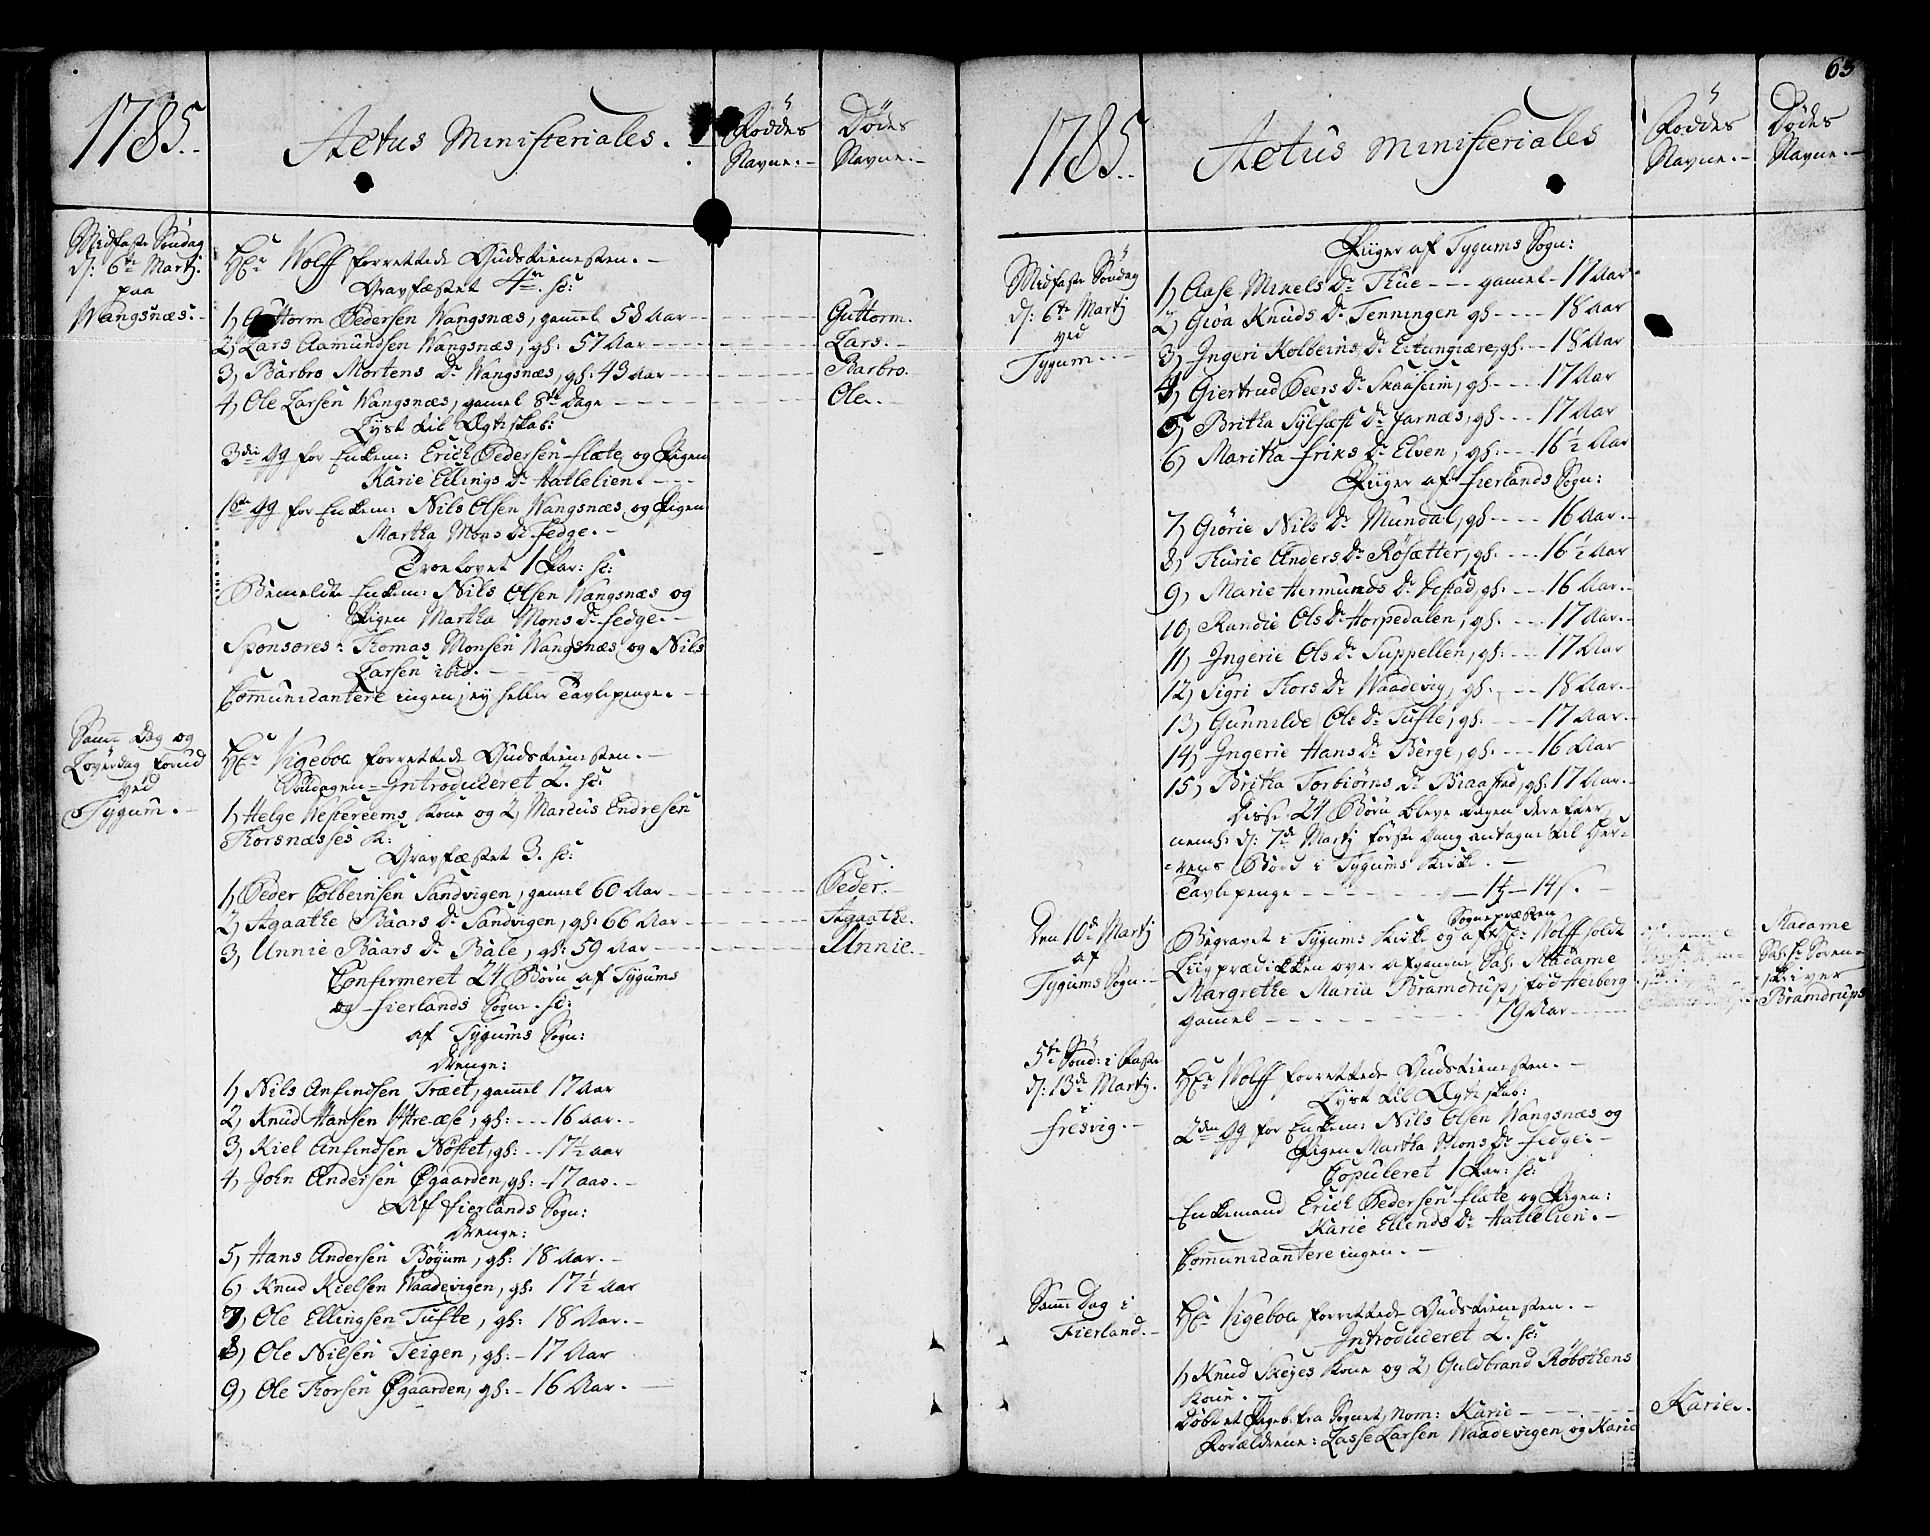 1785.
Actus Ministeriales.
Fødde
Navne.
Døde
Navne.
Midfaste Søndag
d: 6te Martj.
paa
Wangsnæs.
Hr Wolff forrettede Gudstienesten.
Gravfæstet 4re. sc:
1, Guttorm Pedersen Wangsnæs, gamel 58 Aar
Guttorm.
2, Lars Aamundsen Wangsnæs, gl: 57 Aar
Lars.
3, Barbro Mortens Dr Wangsnæs, gl: 43 Aar
Barbro.
4, Ole Larsen Wangsnæs, gamel 8te Dage
Ole.
Lyst til Ægteskab:
3die gg for Enkem: Erich Pedersen Flæte og Pigen
Karie Ellings Dr Hatlelien.
1ste gg for Enkem: Nils Olsen Wangsnæs og Pigen
Martha Mons Dr Fedge.
Troelovet 1 Par: sc:
Bemeldte Enkem: Nils Olsen Wangsnæs og
Pigen Martha Mons Dr Fedge.
Sponsores: Thomas Monsen Wangsnæs og Nils
Larsen ibid.
Comunicantere ingen, ej heller Tavlepenge.
Samme Dag og
Løverdag forud
ved
Tygum.
Hr Vigeboa forrettede Gudstienesten.
Introduceret 2. sc:
1, Helge Vestereems Kone og 2, Marcus Endresen
Thorsnæsses K:
Gravfæstet 3. sc:
1, Peder Colbeinsen Sandvigen, gamel 60 Aar
Peder.
2, Agaathe Baars Dr Sandvigen, gl: 66 Aar
Agaathe.
3, Unnie Baars Dr Bale, gl: 59 Aar
Unnie.
Confirmeret 24 Børn af Tygums
og Fierlands Sogn. sc:
af Tygums Sogn:
Drenge:
1, Nils Anfindsen Træet, gamel 17 Aar
2, Knud Hansen Hrease, gl: 16 aar.
3, Kiel Anfindsen Nøstet, gl: 17½ aar
4, John Andersen Øgaarden, gl: 17 aar.
Af Fierlands Sogn:
Drenge:
5, Hans Andersen Bøyum, gl: 18 Aar.
6, Knud Kielsen Waadevigen, gl: 17½ Aar
7, Ole Ellingsen Tufte, gl: 18 Aar.
8, Ole Nielsen Teigen, gl: 17 Aar
9, Ole Thorsen Øgaarden, gl: 16 Aar.
63
1785.
Actus Ministeriales
Fødde
Navne.
Døde
Navne.
Midfaste Søndag
d: 6te Martj
ved
Tygum.
Piiger af Tygums Sogn:
1, Aase Mikels Dr Thue gamel 17 Aar
2, Giøa Knuds Dr Tenningen gl: 18 Aar
3, Ingeri Kolbeins Dr Eitungiære, gl: 18 Aar
4, Giertrud Peers Dr Skaasein, gl: 17 Aar
5, Britha Sylfæst Dr Jarnæs, gl: 17 Aar
6, Maritha Friks Dr Elven, gl: 16½ Aar
Piiger af Fierlands Sogn:
7, Giørie Nils Dr Mundal, gl: 16 Aar.
8, Thurie Anders Dr Røsætter, gl: 16½ Aar
9, Marie Hermunds Dr Destad, gl: 16 Aar.
10, Randie Ols Dr Horpedalen, gl: 17 Aar.
11, Ingerie Ols Dr Suppellen, gl: 17 Aar
12, Sigri Thors Dr Waadevig, gl: 18 Aar.
13, Gunnilde Ols Dr Tufte, gl: 17 Aar.
14, Ingerie Hans Dr Berge, gl: 16 Aar
15, Britha Torbiørns Dr Braastad, gl: 17 Aar.
Disse 24 Børn bleve Dagen derefter,
neml: d: 7de Martj første Gang antagne til Her-
rens Bord i Tygums Kirke.
Tavlepenge
Den 10de Martj
af
Tygums Sogn.
Sognepræsten
Begravet i Tygums Kirke og af Hr: Wolff holdt
Liigprædikken over afgangne Sal: Madame
Margrethe Maria Bramdrup, fød Heiberg
gamel 79 Aar
Madame
Sal: Hr Soren-
skriver
Bramdrups
5te Sønd: i Faste
d: 13de Martj.
Fresvig.
Hr Wolff forrettede Gudstienesten.
Lyst til Ægteskab:
2den gg for Enkem: Nils Olsen Wangsnæs og
Pigen Martha Mons Dr Fedge.
Copuleret 1 Par: sc:
Enkemand Erich Pedersen Flæte og Pigen:
Karie Ellends Dr Hatlelien.
Comunicantere ingen.
Samme Dag i
Fierland.
Hr Vigeboa forrettede Gudstienesten.
Introduceret 2. sc:
1, Knud Skejes Kone og 2, Guldbrand Røbothens
Kone.
Døbt et Pigeb: fra Sognet, Nom: Karie
Karie.
Forældrene: Lasse Larsen Waadevigen og Karie